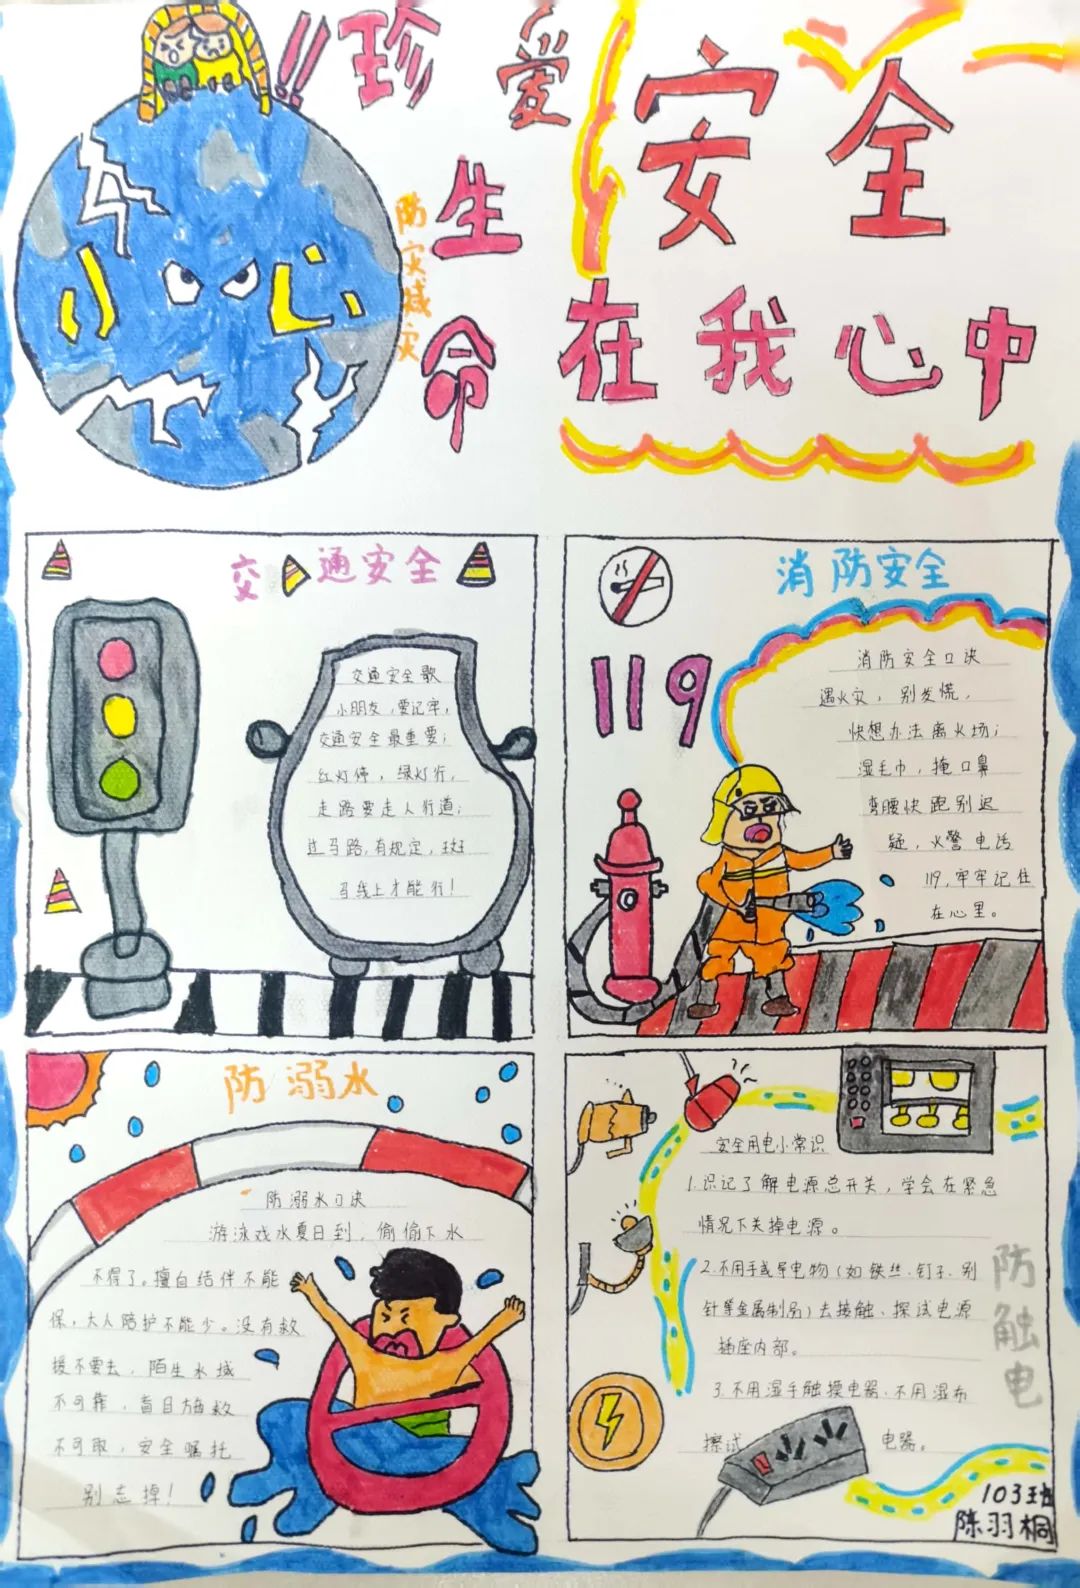 珍爱
生
命
安全
在我心中
防灾减灾
小心
交通安全
交通安全歌
小朋友，要记牢，
交通安全最重要；
红灯停，绿灯行，
走路要走人行道；
过马路，有规定，斑
马线上才能行！
消防安全
119
消防安全口诀
遇火灾，别发慌，
快想办法离火场；
湿毛巾，掩口鼻
弯腰快跑别迟
疑，火警电话
119，牢牢记住
在心里。
防溺水
防溺水口诀
游泳戏水夏日到，偷偷下水
不得了。擅自结伴不能
保，大人陪护不能少。没有救
援不要去，陌生水域
不可靠，盲目施救
不可取，安全嘱托
别忘掉！
安全用电小常识
1.识记了解电源总开关，学会在紧急
情况下关掉电源。
2.不用手或导电物（如铁丝、钉子、别
针等金属制品）去接触、探试电源
插座内部。
3.不用湿手触摸电器、不用湿布
擦试 电器。
防触电
103班
陈羽桐